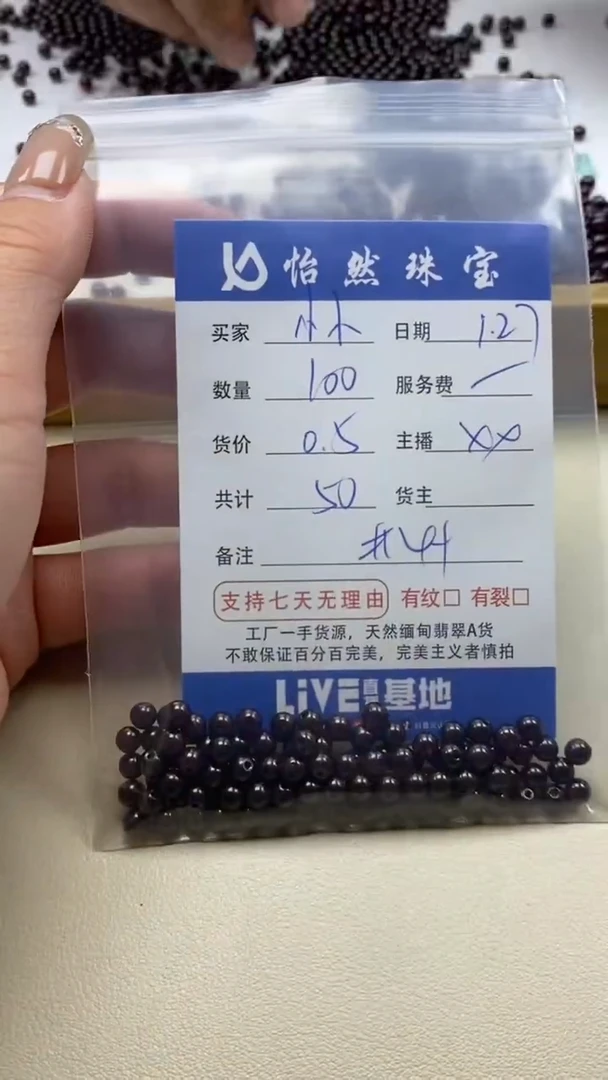 怡然珠宝
买家 林 日期 1.27
数量 100 服务费 —
货价 0.5 主播 XX
共计 50 货主
备注 #44
支持七天无理由 有纹□ 有裂□
工厂一手货源，天然缅甸翡翠A货
不敢保证百分百完美，完美主义者慎拍
LiVE直播基地